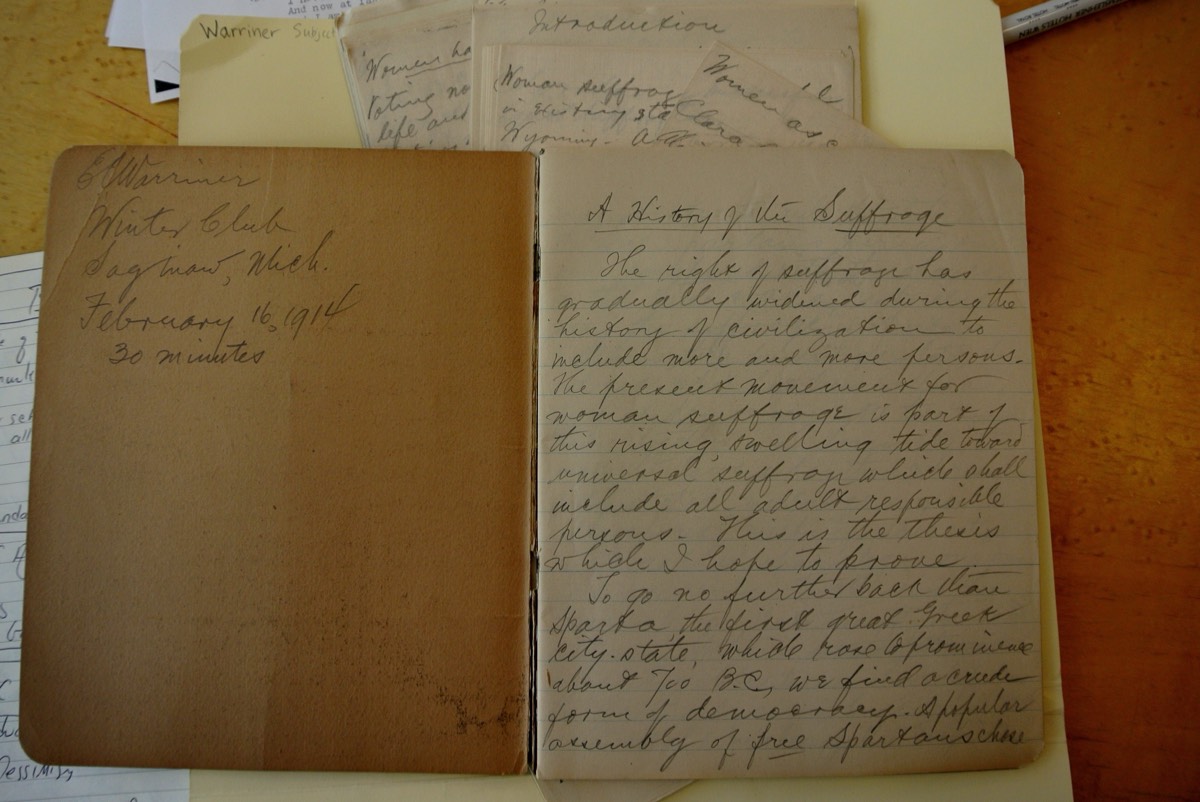 And now at
Warriner Subject
Introduction
Women
Voting no
life and
Woman suffrag
in existing sta
Wyoming.
Clara
Women as
E C Warriner
Winter Club
Saginaw, Mich.
February 16, 1914
30 minutes
A History of the Suffrage
The right of suffrage has
gradually widened during the
history of civilization to
include more and more persons.
The present movement for
woman suffrage is part of
this rising, swelling tide toward
universal suffrag which shall
include all adult responsible
persons. This is the thesis
which I hope to prove.
To go no further back than
Sparta, the first great Greek
city-state, which rose to prominence
about 700 B.C, we find a crude
form of democracy. A popular
assembly of free Spartans chose